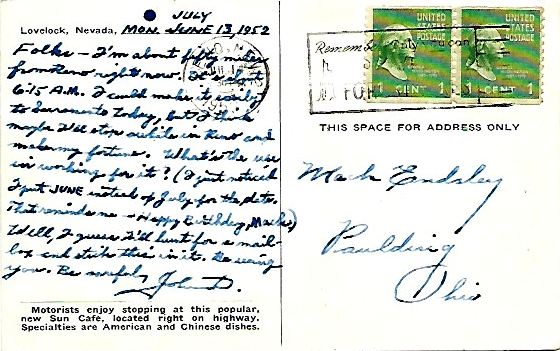 JULY
Lovelock, Nevada, MON. JUNE 13, 1952
Folks – I'm about fifty miles
from Reno right now. It's about
6:15 A.M. I could make it easily
to Sacramento today, but I think
maybe I'll stop awhile in Reno and
make my fortune. What's the use
in working for it? (I just noticed
I put JUNE instead of July for the date.
That reminds me – Happy Birthday, Mack.)
Well, I guess I'll hunt for a mail-
box and stick this in it. Be seeing
you. Be
John D.
Motorists enjoy stopping at this popular,
new Sun Cafe, located right on highway.
Specialties are American and Chinese dishes.
UNITED STATES POSTAGE
1 CENT 1
UNITED STATES POSTAGE
1 CENT 1
FOR
THIS SPACE FOR ADDRESS ONLY
Mack Endsley
Paulding
Ohio